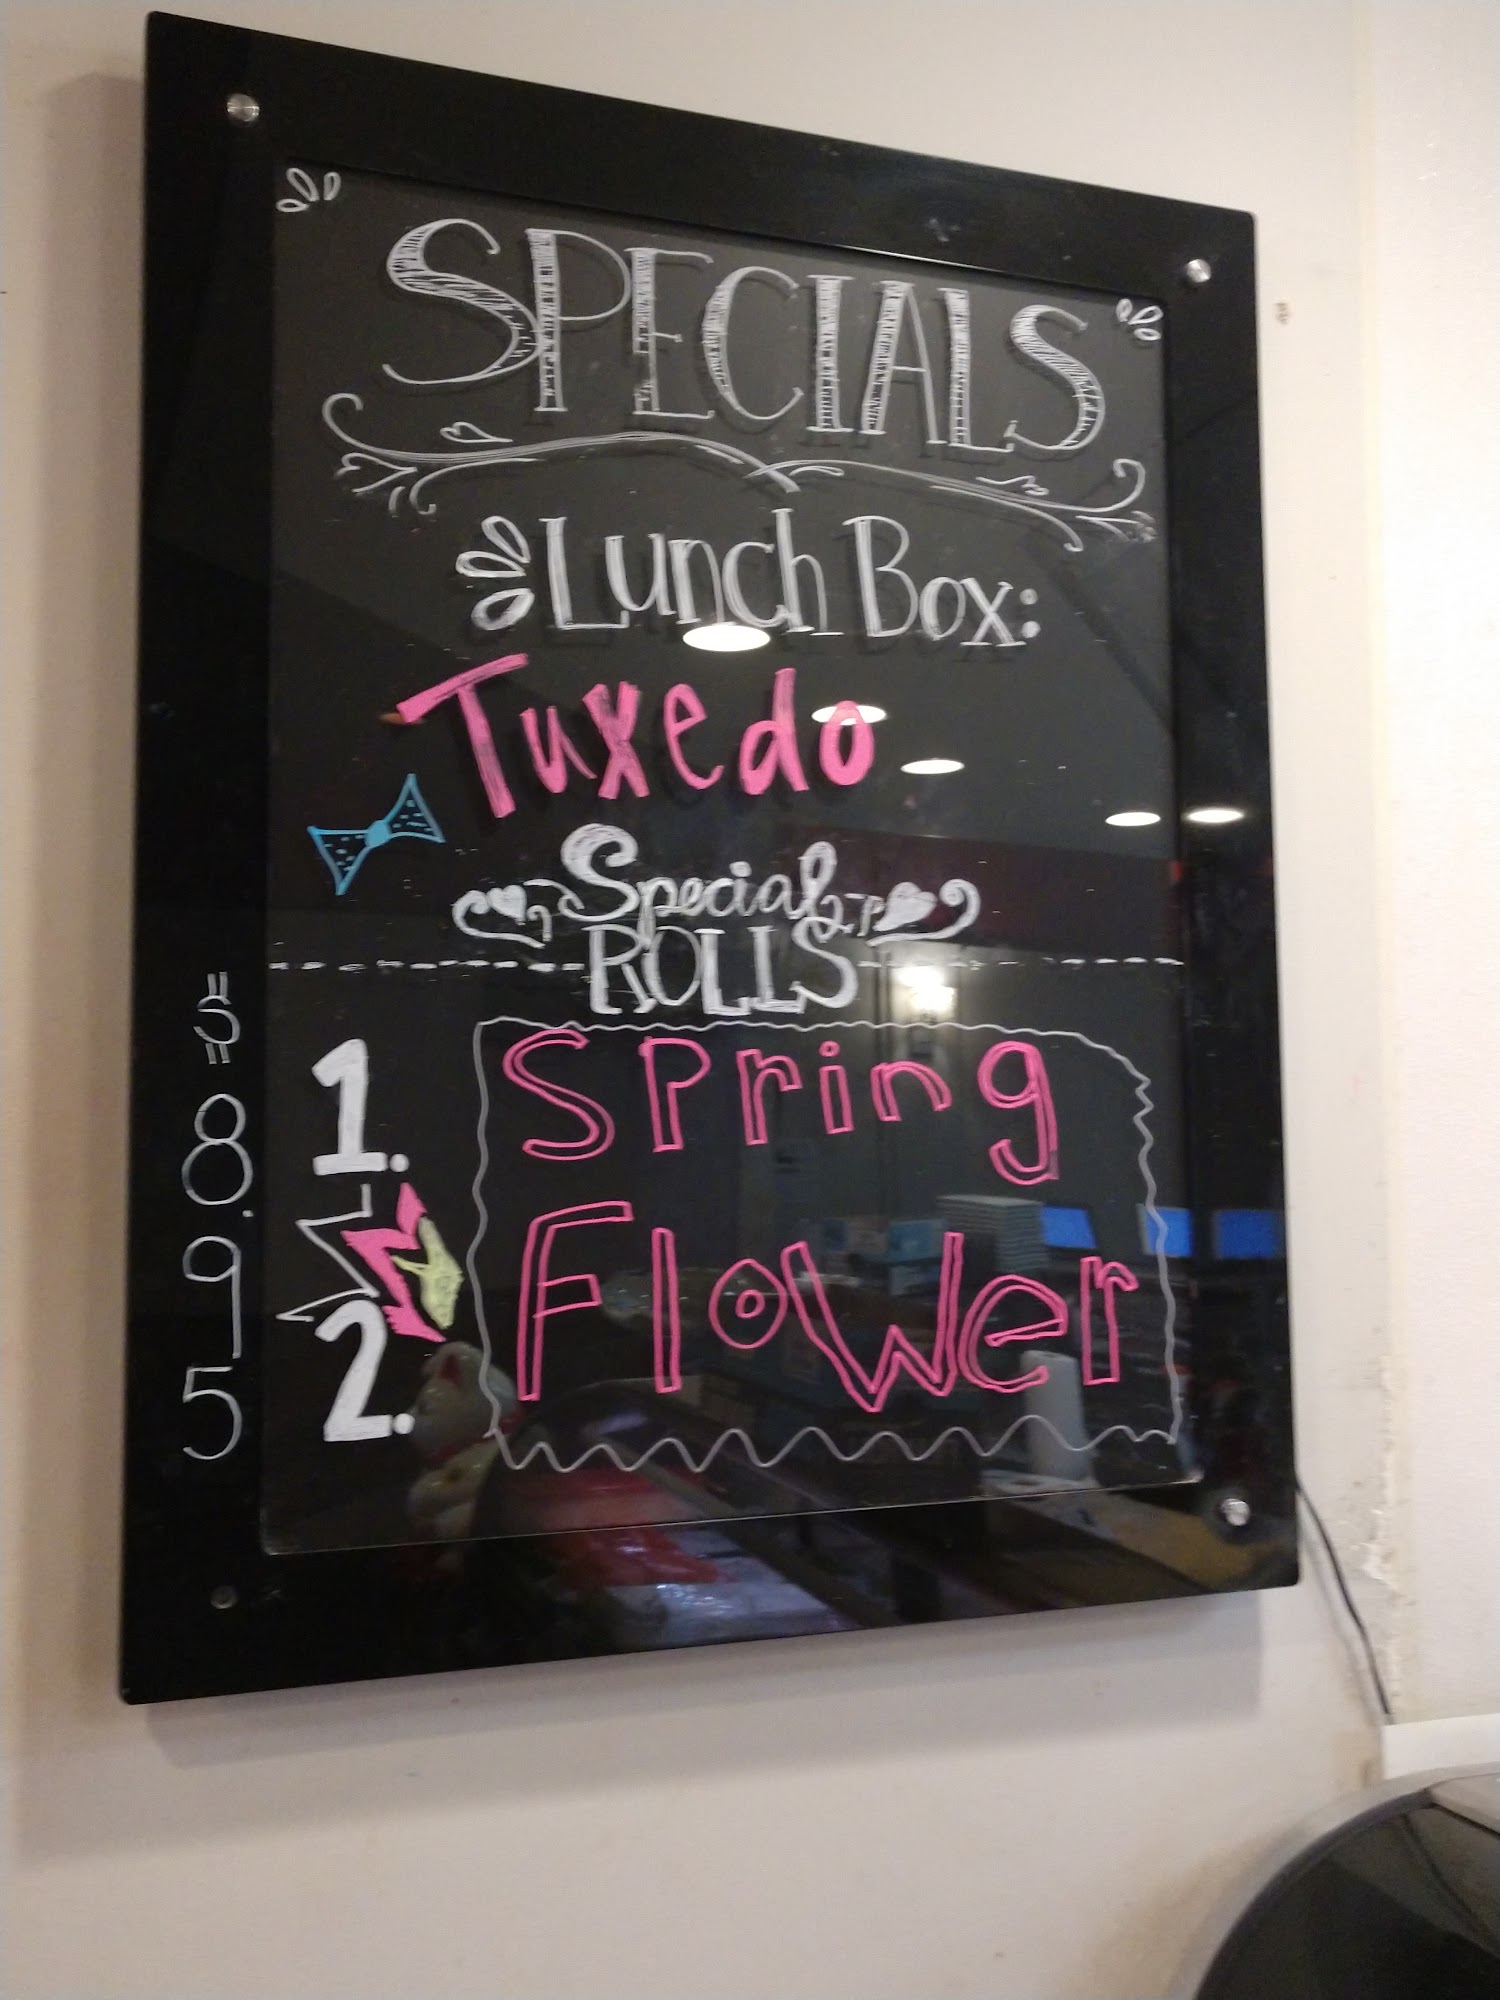 SPECIALS
Lunch Box:
Tuxedo
Special
ROLLS
1. Spring
2. Flower
$8.95